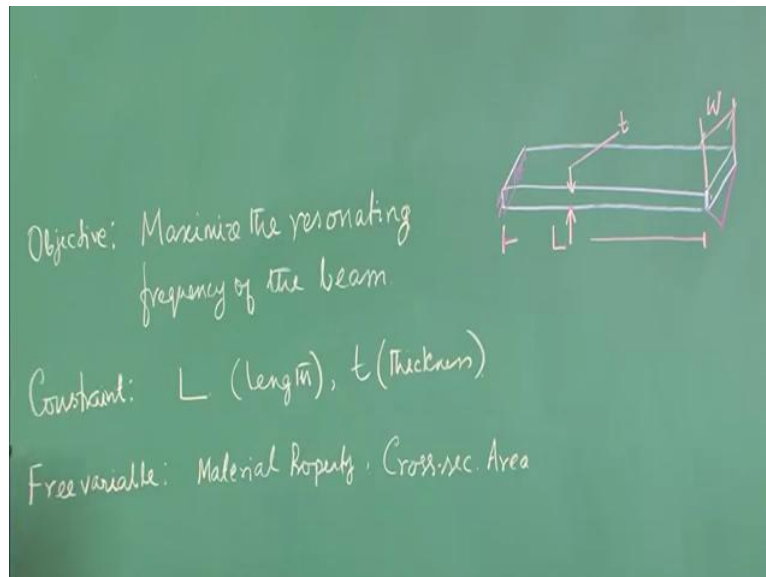 W
t
L
Objective: Maximize the resonating
frequency of the beam.
Constraint: L (length), t (Thickness)
Free variable: Material Property, Cross-sec. Area